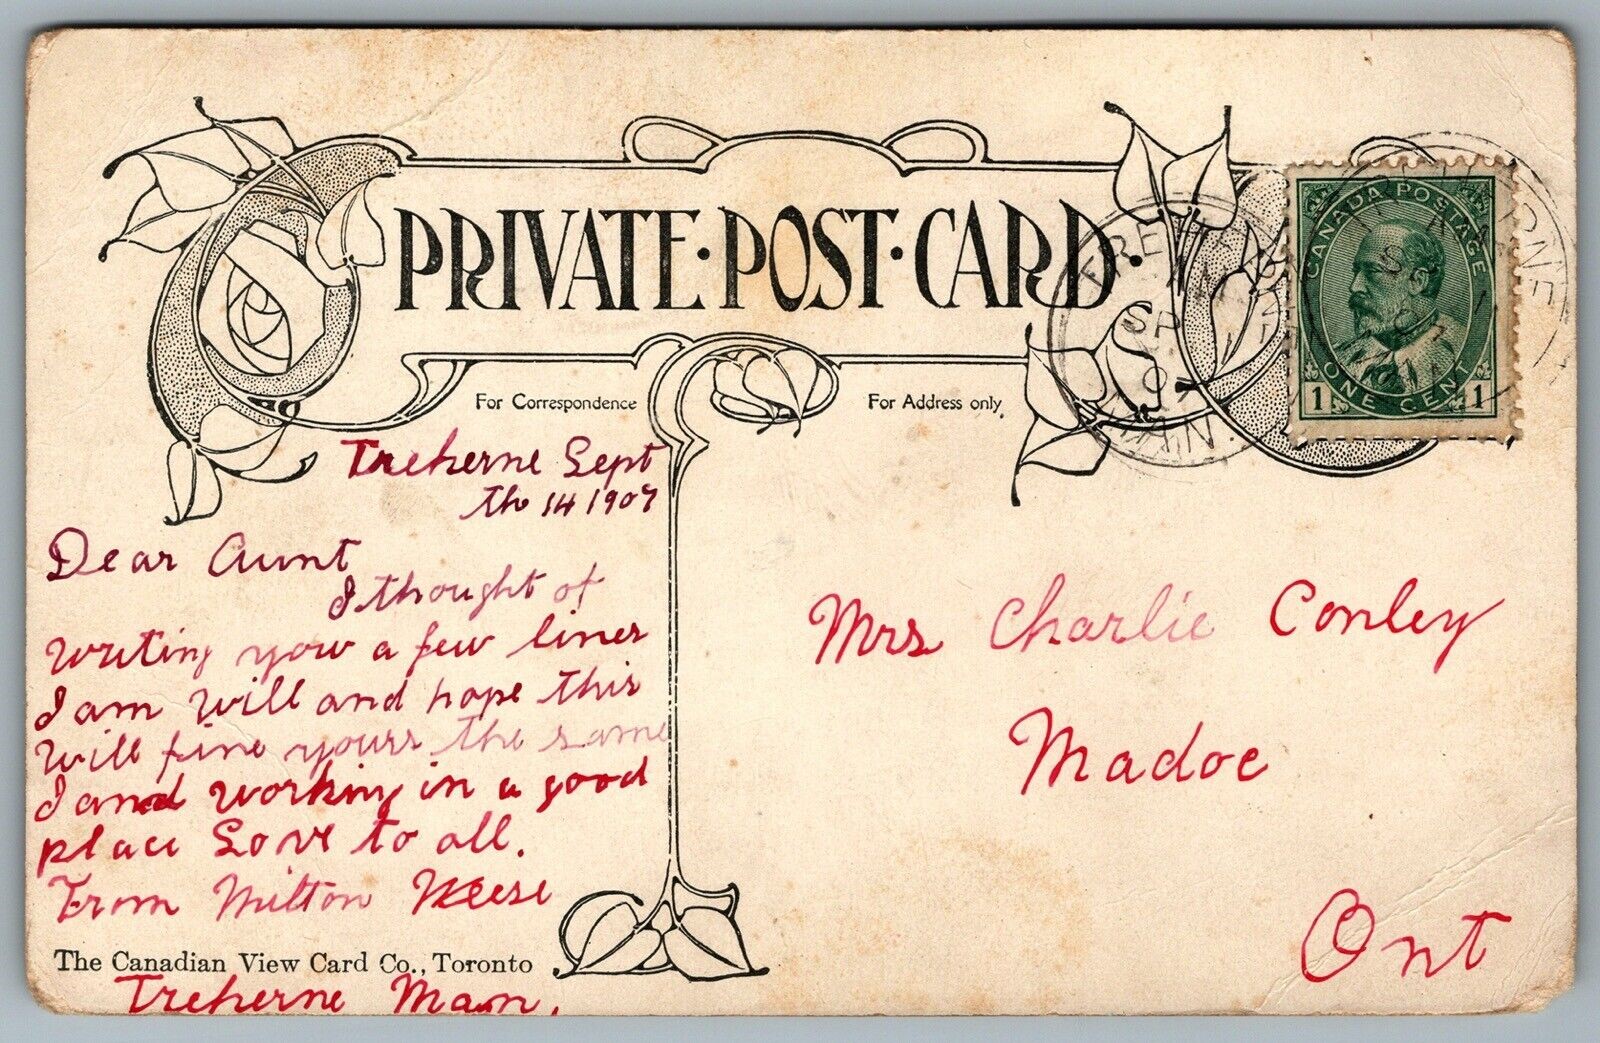 PRIVATE·POST·CARD·
For Correspondence
For Address only.
CANADA POSTAGE
1 ONE CENT 1
TREHERNE
AM
SP
07
MAN.
Treherne Sept
th 14 1907
Dear Aunt
I thought of
writing yow a few lines
I am will and hope this
will fine yours the same
I and working in a good
place Love to all.
From Milton
The Canadian View Card Co., Toronto
Treherne Man.
Mrs Charlie Conley
Madoc
Ont